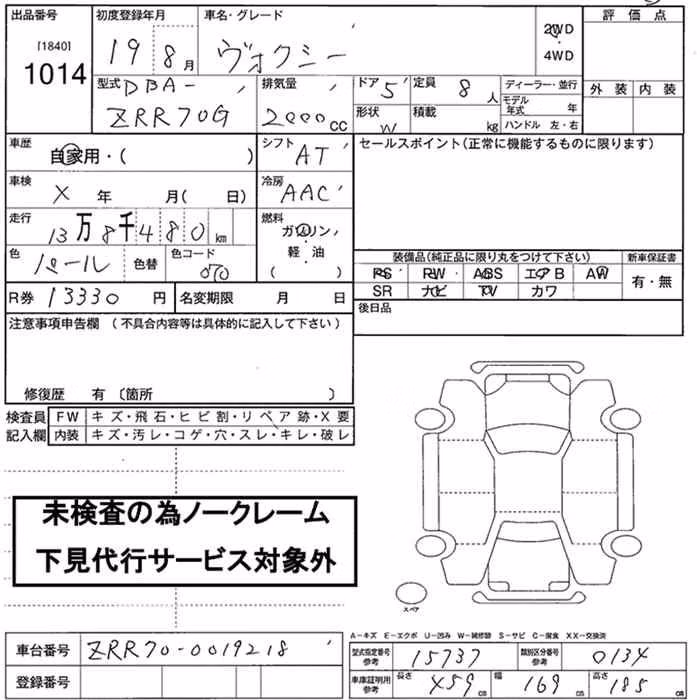 出品番号
[1840]
1014
初度登録年月
19 8 月
車名・グレード
ヴォクシー
2WD
4WD
評価点
外装 内装
型式 DBA-
ZRR70G
排気量
2000 CC
ドア 5
定員 8 人
形状 W
積載 kg
ディーラー・並行
モデル年式 年
ハンドル 左・右
車歴 自家用・( )
シフト AT
セールスポイント(正常に機能するものに限ります)
車検 X 年 月( 日)
冷房 AAC
走行 13万8千480 km
燃料 ガソリン・軽油 ( )
色 パール 色替
色コード 070
装備品(純正品に限り丸をつけて下さい)
新車保証書
PS PW ABS エアB AW
SR ナビ TV カワ
有・無
R券 13330 円
名変期限 月 日
後日品
注意事項申告欄 (不具合内容等は具体的に記入して下さい)
修復歴 有 〔箇所 〕
検査員記入欄
FW キズ・飛石・ヒビ割・リペア跡・X要
内装 キズ・汚レ・コゲ・穴・スレ・キレ・破レ
未検査の為ノークレーム
下見代行サービス対象外
スペア
A-キズ E-エクボ U-凹み W-補修跡 S-サビ C-腐食 XX-交換済
車台番号 ZRR70-0019218
登録番号
型式指定番号参考 15737
類別区分番号参考 0134
車庫証明用参考 長さ 459 cm 幅 169 cm 高さ 185 cm